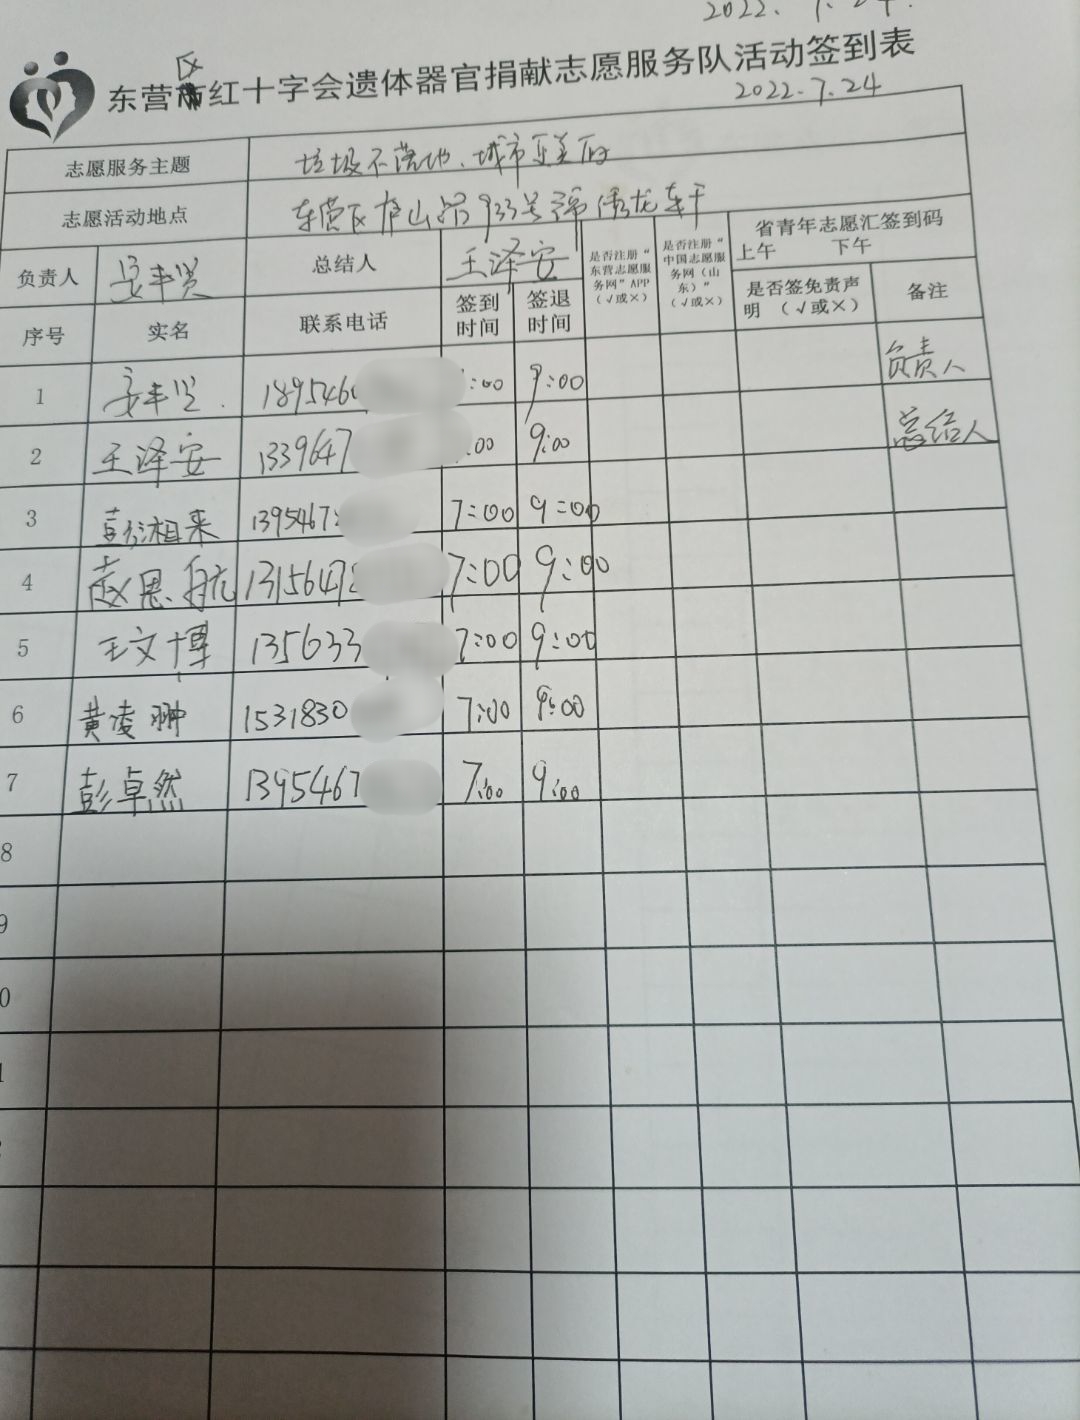 2022.7.24.
东营区红十字会遗体器官捐献志愿服务队活动签到表
2022.7.24
志愿服务主题 垃圾不落地、城市更美丽
志愿活动地点 东营区庐山路933号
负责人 总结人 王泽安 是否注册“东营志愿服务网”APP（√或×） 是否注册“中国志愿服务网（山东）”（√或×） 省青年志愿汇签到码 上午 下午
序号 实名 联系电话 签到时间 签退时间 是否签免责声明（√或×） 备注
1 189546 :00 9:00 负责人
2 王泽安 1339647 :00 9:00 总结人
3 彭湘来 1395467 7:00 9:00
4 赵恩航 1315647 7:00 9:00
5 王文博 135633 7:00 9:00
6 黄凌翀 1531830 7:00 9:00
7 彭卓然 1395467 7:00 9:00
8
9
0